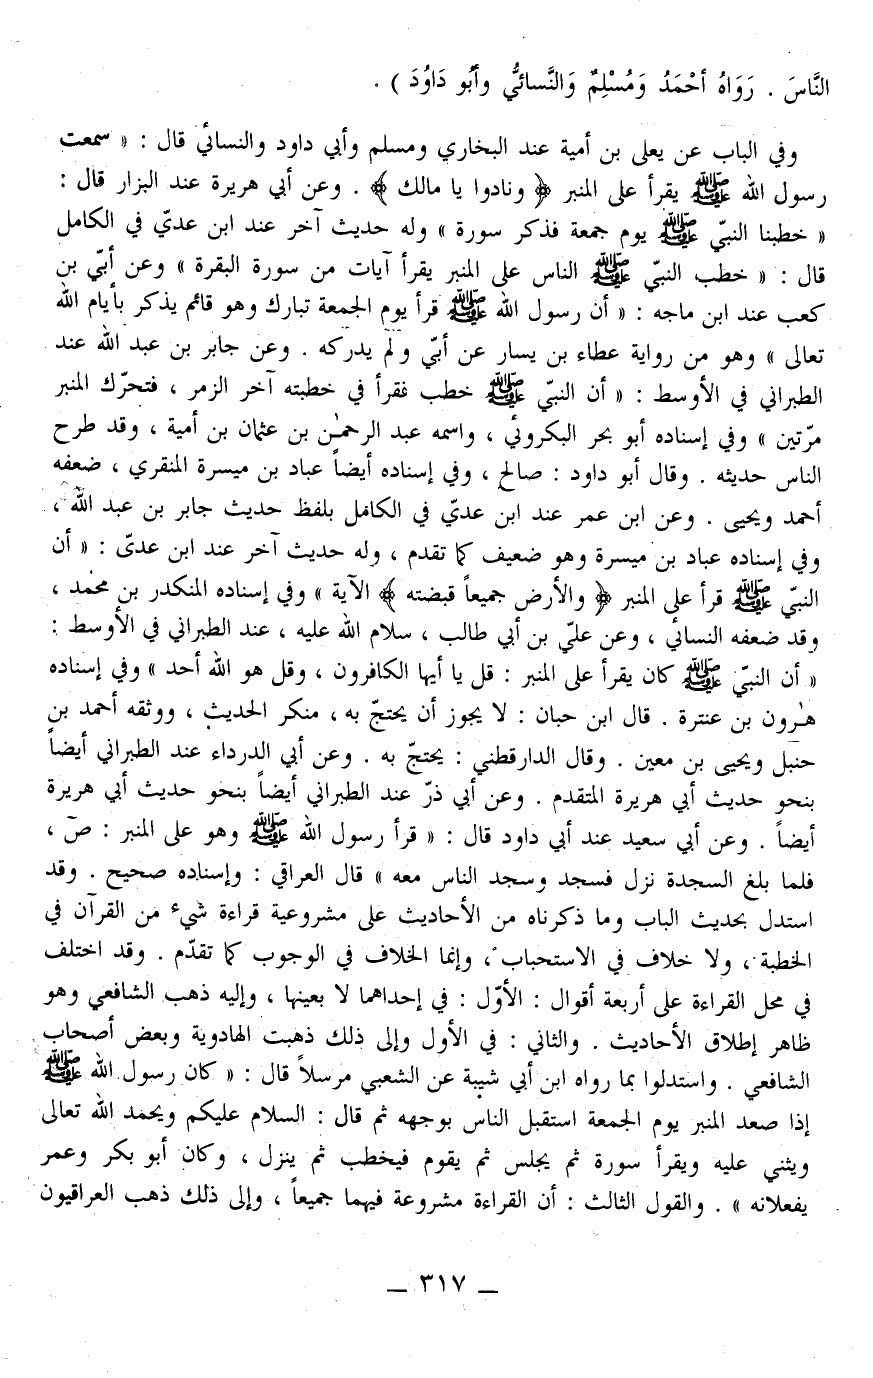 النَّاسَ . رَوَاهُ أحْمَدُ وَمُسْلِمٌ وَالنَّسائيُّ وأبُو دَاوُدَ ) .
وفي الباب عن يعلى بن أمية عند البخاري ومسلم وأبي داود والنسائي قال : « سمعت
رسول الله ﷺ يقرأ على المنبر ﴿ ونادوا يا مالك ﴾ . وعن أبي هريرة عند البزار قال :
« خطبنا النبيّ ﷺ يوم جمعة فذكر سورة » وله حديث آخر عند ابن عديّ في الكامل
قال : « خطب النبيّ ﷺ الناس على المنبر يقرأ آيات من سورة البقرة » وعن أبيّ بن
كعب عند ابن ماجه : « أن رسول الله ﷺ قرأ يوم الجمعة تبارك وهو قائم يذكر بأيام الله
تعالى » وهو من رواية عطاء بن يسار عن أبيّ ولم يدركه . وعن جابر بن عبد الله عند
الطبراني في الأوسط : « أن النبيّ ﷺ خطب فقرأ في خطبته آخر الزمر ، فتحرّك المنبر
مرّتين » وفي إسناده أبو بحر البكروني ، واسمه عبد الرحمٰن بن عثمان بن أمية ، وقد طرح
الناس حديثه . وقال أبو داود : صالح ، وفي إسناده أيضاً عباد بن ميسرة المنقري ، ضعفه
أحمد ويحيى . وعن ابن عمر عند ابن عديّ في الكامل بلفظ حديث جابر بن عبد الله ،
وفي إسناده عباد بن ميسرة وهو ضعيف كما تقدم ، وله حديث آخر عند ابن عديّ : « أن
النبيّ ﷺ قرأ على المنبر ﴿ والأرض جميعاً قبضته ﴾ الآية » وفي إسناده المنكدر بن محمد ،
وقد ضعفه النسائي ، وعن عليّ بن أبي طالب ، سلام الله عليه ، عند الطبراني في الأوسط :
« أن النبيّ ﷺ كان يقرأ على المنبر : قل يا أيها الكافرون ، وقل هو الله أحد » وفي إسناده
هٰرون بن عنترة . قال ابن حبان : لا يجوز أن يحتجّ به ، منكر الحديث ، ووثقه أحمد بن
حنبل ويحيى بن معين . وقال الدارقطني : يحتجّ به . وعن أبي الدرداء عند الطبراني أيضاً
بنحو حديث أبي هريرة المتقدم . وعن أبي ذرّ عند الطبراني أيضاً بنحو حديث أبي هريرة
أيضاً . وعن أبي سعيد عند أبي داود قال : « قرأ رسول الله ﷺ وهو على المنبر : صٓ ،
فلما بلغ السجدة نزل فسجد وسجد الناس معه » قال العراقي : وإسناده صحيح . وقد
استدل بحديث الباب وما ذكرناه من الأحاديث على مشروعية قراءة شيء من القرآن في
الخطبة ، ولا خلاف في الاستحباب ، وإنما الخلاف في الوجوب كما تقدّم . وقد اختلف
في محل القراءة على أربعة أقوال : الأوّل : في إحداهما لا بعينها ، وإليه ذهب الشافعي وهو
ظاهر إطلاق الأحاديث . والثاني : في الأول وإلى ذلك ذهبت الهادوية وبعض أصحاب
الشافعي . واستدلوا بما رواه ابن أبي شيبة عن الشعبي مرسلاً قال : « كان رسول الله ﷺ
إذا صعد المنبر يوم الجمعة استقبل الناس بوجهه ثم قال : السلام عليكم ويحمد الله تعالى
ويثني عليه ويقرأ سورة ثم يجلس ثم يقوم فيخطب ثم ينزل ، وكان أبو بكر وعمر
يفعلانه » . والقول الثالث : أن القراءة مشروعة فيهما جميعاً ، وإلى ذلك ذهب العراقيون
— ٣١٧ —